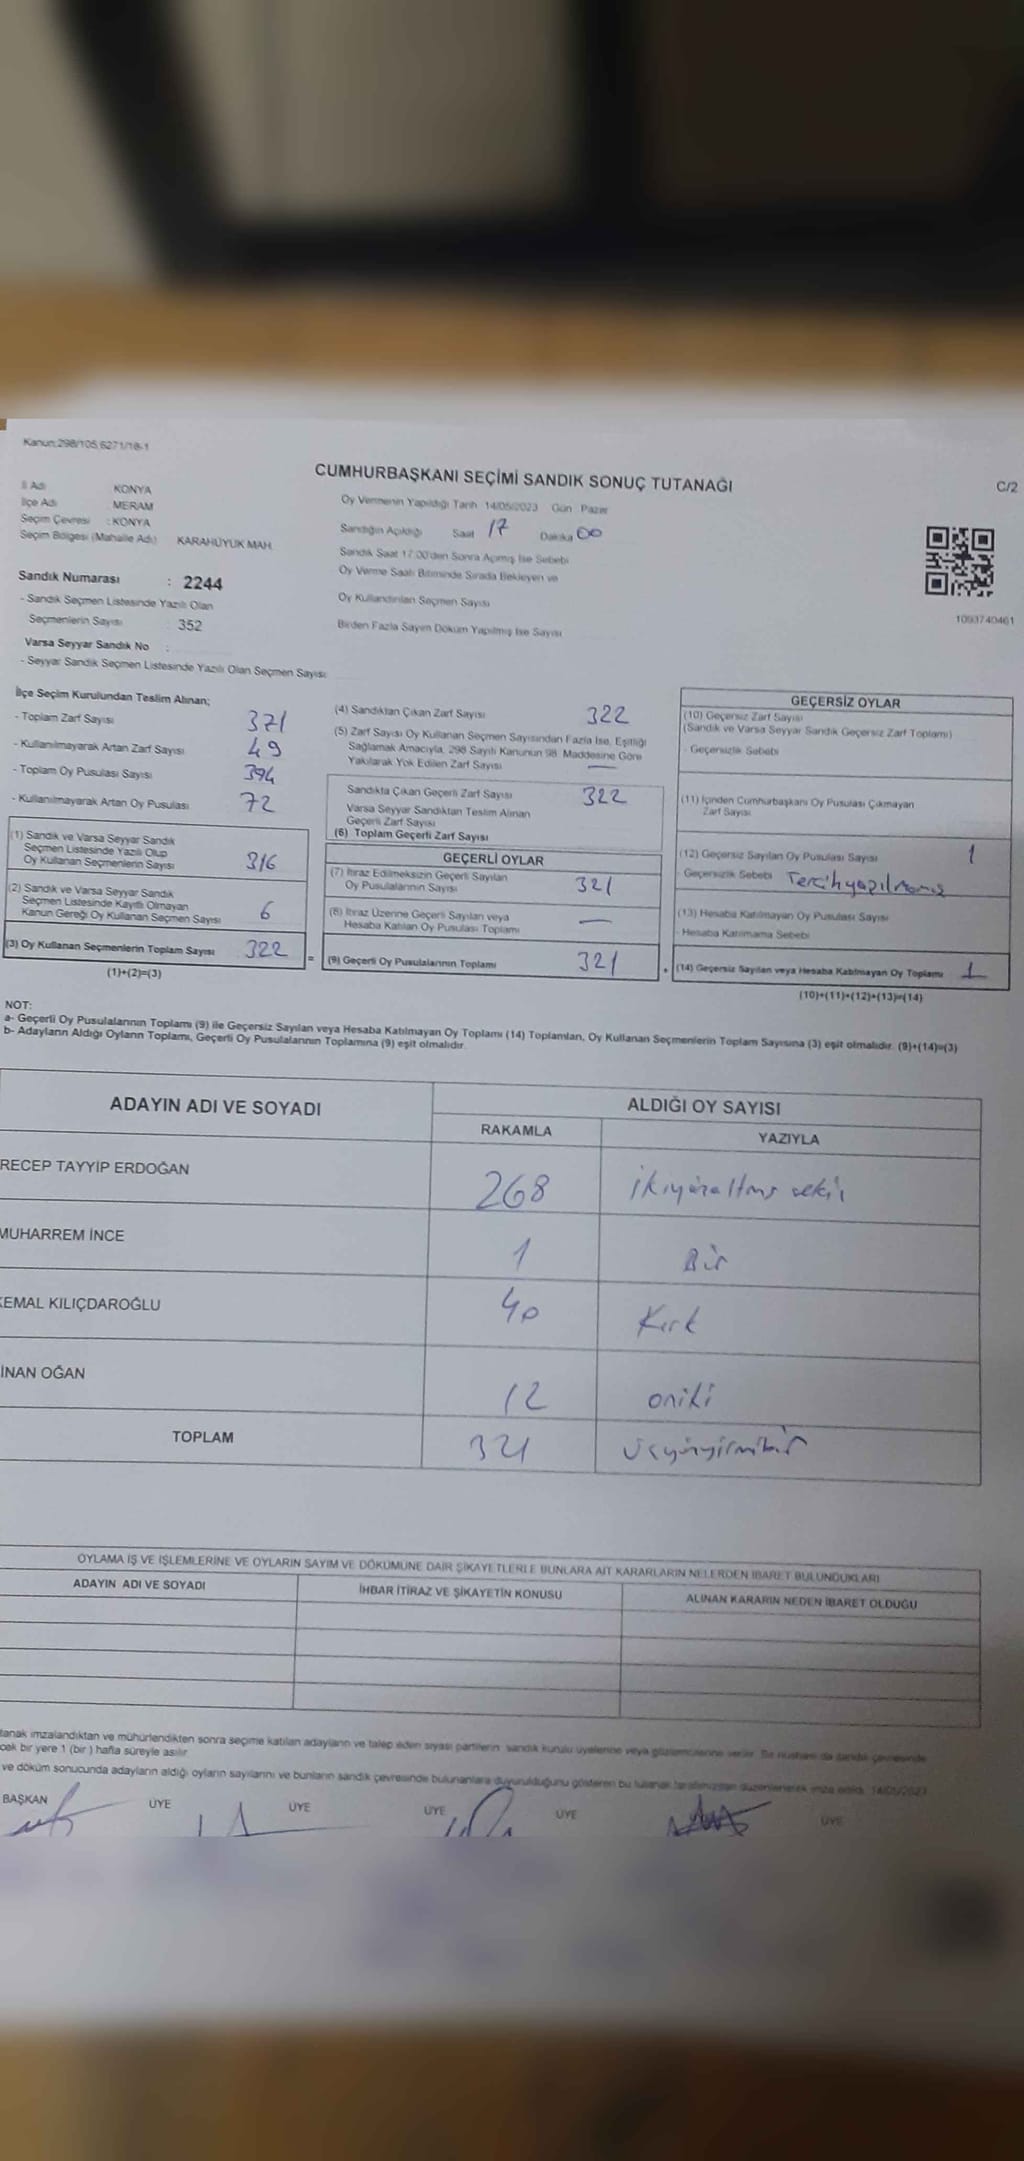 Kanun:298/105,6271/18-1
CUMHURBAŞKANI SEÇİMİ SANDIK SONUÇ TUTANAĞI
C/2
İl Adı KONYA
İlçe Adı MERAM
Seçim Çevresi : KONYA
Seçim Bölgesi (Mahalle Adı) KARAHÜYÜK MAH.
Sandık Numarası : 2244
- Sandık Seçmen Listesinde Yazılı Olan
Seçmenlerin Sayısı 352
Varsa Seyyar Sandık No :
- Seyyar Sandık Seçmen Listesinde Yazılı Olan Seçmen Sayısı
Oy Vermenin Yapıldığı Tarih 14/05/2023 Gün Pazar
Sandığın Açıldığı Saat 17 Dakika 00
Sandık Saat 17:00'den Sonra Açılmış İse Sebebi
Oy Verme Saati Bitiminde Sırada Bekleyen ve
Oy Kullandırılan Seçmen Sayısı
Birden Fazla Sayım Döküm Yapılmış İse Sayısı
1093740461
İlçe Seçim Kurulundan Teslim Alınan;
- Toplam Zarf Sayısı 371
- Kullanılmayarak Artan Zarf Sayısı 49
- Toplam Oy Pusulası Sayısı 394
- Kullanılmayarak Artan Oy Pusulası 72
(1) Sandık ve Varsa Seyyar Sandık
Seçmen Listesinde Yazılı Olup
Oy Kullanan Seçmenlerin Sayısı 316
(2) Sandık ve Varsa Seyyar Sandık
Seçmen Listesinde Kayıtlı Olmayan
Kanun Gereği Oy Kullanan Seçmen Sayısı 6
(3) Oy Kullanan Seçmenlerin Toplam Sayısı 322
(1)+(2)=(3)
=
(4) Sandıktan Çıkan Zarf Sayısı 322
(5) Zarf Sayısı Oy Kullanan Seçmen Sayısından Fazla İse, Eşitliği
Sağlamak Amacıyla, 298 Sayılı Kanunun 98. Maddesine Göre
Yakılarak Yok Edilen Zarf Sayısı —
Sandıkta Çıkan Geçerli Zarf Sayısı 322
Varsa Seyyar Sandıktan Teslim Alınan
Geçerli Zarf Sayısı
(6) Toplam Geçerli Zarf Sayısı
GEÇERLİ OYLAR
(7) İtiraz Edilmeksizin Geçerli Sayılan
Oy Pusulalarının Sayısı 321
(8) İtiraz Üzerine Geçerli Sayılan veya
Hesaba Katılan Oy Pusulası Toplamı —
(9) Geçerli Oy Pusulalarının Toplamı 321
+
GEÇERSİZ OYLAR
(10) Geçersiz Zarf Sayısı
(Sandık ve Varsa Seyyar Sandık Geçersiz Zarf Toplamı)
- Geçersizlik Sebebi
(11) İçinden Cumhurbaşkanı Oy Pusulası Çıkmayan
Zarf Sayısı
(12) Geçersiz Sayılan Oy Pusulası Sayısı 1
- Geçersizlik Sebebi Tercih yapılmamış
(13) Hesaba Katılmayan Oy Pusulası Sayısı
- Hesaba Katılmama Sebebi
(14) Geçersiz Sayılan veya Hesaba Katılmayan Oy Toplamı 1
(10)+(11)+(12)+(13)=(14)
NOT:
a- Geçerli Oy Pusulalarının Toplamı (9) ile Geçersiz Sayılan veya Hesaba Katılmayan Oy Toplamı (14) Toplamları, Oy Kullanan Seçmenlerin Toplam Sayısına (3) eşit olmalıdır. (9)+(14)=(3)
b- Adayların Aldığı Oyların Toplamı, Geçerli Oy Pusulalarının Toplamına (9) eşit olmalıdır.
ADAYIN ADI VE SOYADI ALDIĞI OY SAYISI
RAKAMLA YAZIYLA
RECEP TAYYİP ERDOĞAN 268 ikiyüzaltmış sekiz
MUHARREM İNCE 1 Bir
KEMAL KILIÇDAROĞLU 40 Kırk
İNAN OĞAN 12 oniki
TOPLAM 321 üçyüzyirmibir
OYLAMA İŞ VE İŞLEMLERİNE VE OYLARIN SAYIM VE DÖKÜMÜNE DAİR ŞİKAYETLERLE BUNLARA AİT KARARLARIN NELERDEN İBARET BULUNDUKLARI
ADAYIN ADI VE SOYADI İHBAR İTİRAZ VE ŞİKAYETİN KONUSU ALINAN KARARIN NEDEN İBARET OLDUĞU
tanak imzalandıktan ve mühürlendikten sonra seçime katılan adayların ve talep eden siyasi partilerin sandık kurulu üyelerine veya gözlemcilerine verilir. Bir nüshası da sandık çevresinde
cek bir yere 1 (bir) hafta süreyle asılır.
ve döküm sonucunda adayların aldığı oyların sayılarını ve bunların sandık çevresinde bulunanlara duyurulduğunu gösteren bu tutanak tarafımızdan düzenlenerek imza edildi. 14/05/2023
BAŞKAN ÜYE ÜYE ÜYE ÜYE ÜYE